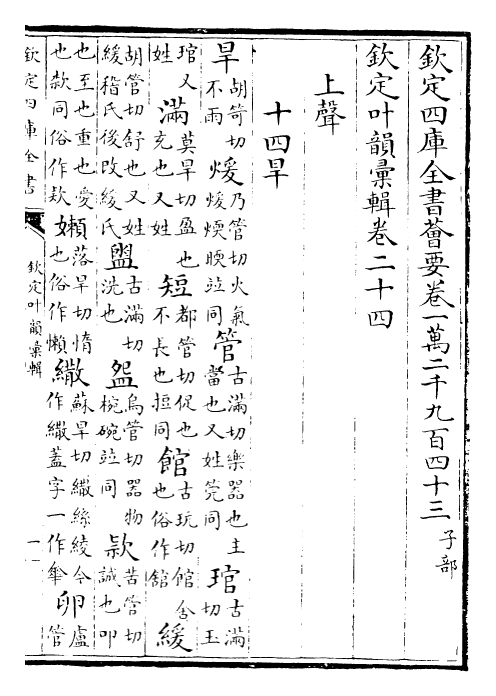 欽定四庫全書薈要卷一萬二千九百四十三 子部
欽定叶韻彙輯卷二十四
上聲
十四旱
旱 胡笴切不雨 煖 乃管切火氣煖煗㬉竝同 管 古滿切樂器也主當也又姓筦同 琯 古滿切玉
琯又姓 滿 莫旱切盈也充也又姓 短 都管切促也不長也𢭃同 館 古玩切館舍也俗作舘 緩
胡管切舒也又姓緩稽氏後改緩氏 盥 古滿切洗也 盌 烏管切器物椀碗竝同 款 苦管切誠也叩
也至也重也愛也欵同俗作欵 嬾 落旱切惰也俗作懶 繖 蘇旱切繖絲綾今作繖蓋字一作傘 卵 盧管
欽定四庫全書
欽定叶韻彙輯
一